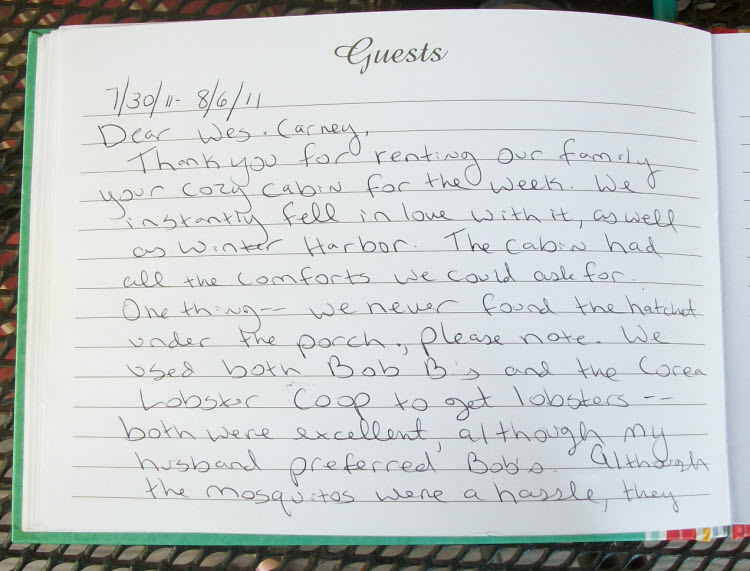 Guests
7/30/11 - 8/6/11
Dear Wes. Carney,
Thank you for renting our family
your cozy cabin for the week. We
instantly fell in love with it, as well
as Winter Harbor. The cabin had
all the comforts we could ask for.
One thing -- we never found the hatchet
under the porch, please note. We
used both Bob B's and the Corea
Lobster Coop to get lobsters --
both were excellent, although my
husband preferred Bob's. Although
the mosquitos were a hassle, they